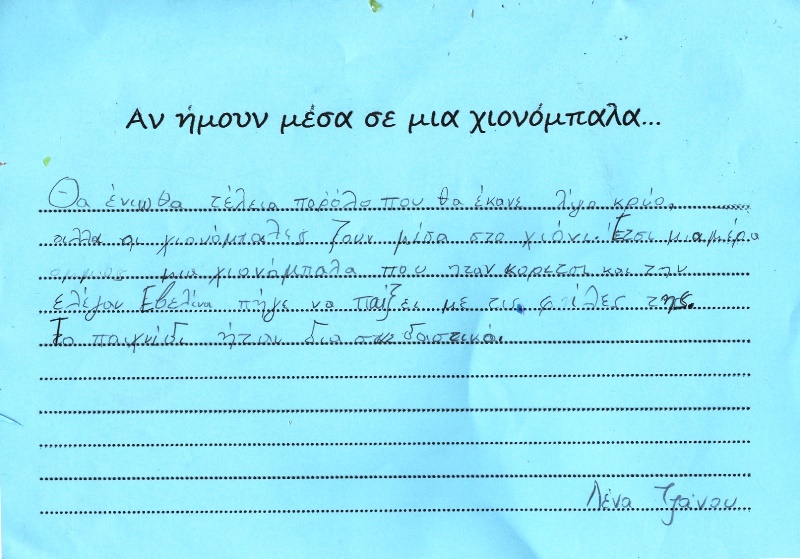 Αν ήμουν μέσα σε μια χιονόμπαλα...
Θα ένιωθα τέλεια παρόλο που θα έκανε λίγο κρύο,
αλλα οι χιονόμπαλες ζουν μέσα στο χιόνι. Έτσι μια μέρα
μια χιονόμπαλα που ηταν κορετσι και την
ελέγαν Εβελίνα πήγε να παίξει με τις φίλες της.
Το παιχνίδι ήταν διασκεδαστικό.
Λένα Τζάνου